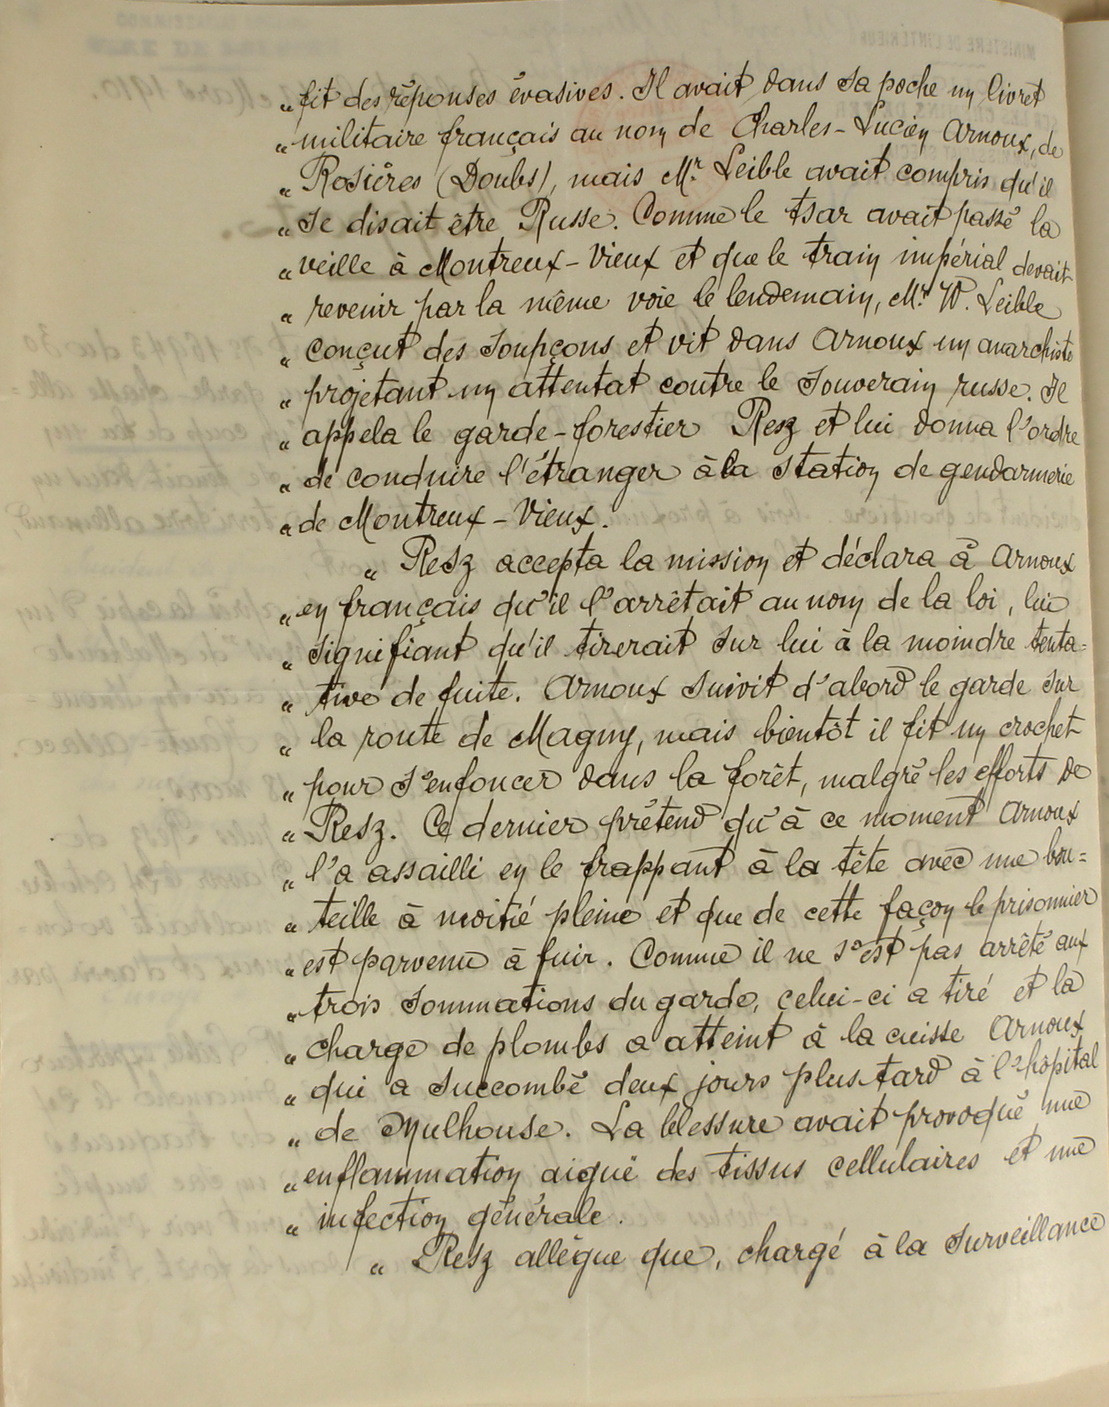 „ fit des réponses évasives. Il avait dans sa poche un livret
„ militaire français au nom de Charles-Lucien Arnoux, de
„ Rosières (Doubs), mais Mr Leible avait compris qu'il
„ se disait être Russe. Comme le tsar avait passé la
„ veille à Montreux-Vieux et que le train impérial devait
„ revenir par la même voie le lendemain, Mr W. Leible
„ conçut des soupçons et vit dans Arnoux un anarchiste
„ projetant un attentat contre le Souverain russe. Il
„ appela le garde-forestier Resz et lui donna l'ordre
„ de conduire l'étranger à la station de gendarmerie
„ de Montreux-Vieux.
„ Resz accepta la mission et déclara à Arnoux
„ en français qu'il l'arrêtait au nom de la loi, lui
„ signifiant qu'il tirerait sur lui à la moindre tenta=
„ tive de fuite. Arnoux suivit d'abord le garde sur
„ la route de Magny, mais bientôt il fit un crochet
„ pour s'enfoncer dans la forêt, malgré les efforts de
„ Resz. Ce dernier prétend qu'à ce moment Arnoux
„ l'a assailli en le frappant à la tête avec une bou=
„ teille à moitié pleine et que de cette façon le prisonnier
„ est parvenu à fuir. Comme il ne s'est pas arrêté aux
„ trois sommations du garde, celui-ci a tiré et la
„ charge de plombs a atteint à la cuisse Arnoux
„ qui a succombé deux jours plus tard à l'hôpital
„ de Mulhouse. La blessure avait provoqué une
„ enflammation aiguë des tissus cellulaires et une
„ infection générale.
„ Resz allègue que, chargé à la surveillance